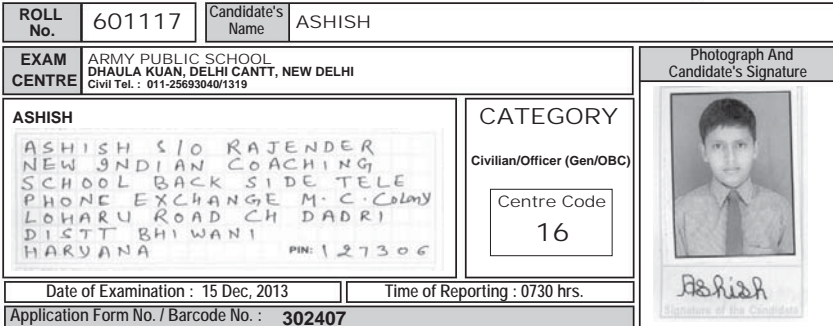 ROLL No. 601117 Candidate's Name ASHISH
EXAM CENTRE ARMY PUBLIC SCHOOL
DHAULA KUAN, DELHI CANTT, NEW DELHI
Civil Tel. : 011-25693040/1319
Photograph And
Candidate's Signature
ASHISH
ASHISH S/O RAJENDER
NEW INDIAN COACHING
SCHOOL BACK SIDE TELE
PHONE EXCHANGE M.C. Colony
LOHARU ROAD CH DADRI
DISTT BHIWANI
HARYANA PIN: 127306
CATEGORY
Civilian/Officer (Gen/OBC)
Centre Code
16
Ashish
Signature of the Candidate
Date of Examination : 15 Dec, 2013 Time of Reporting : 0730 hrs.
Application Form No. / Barcode No. : 302407